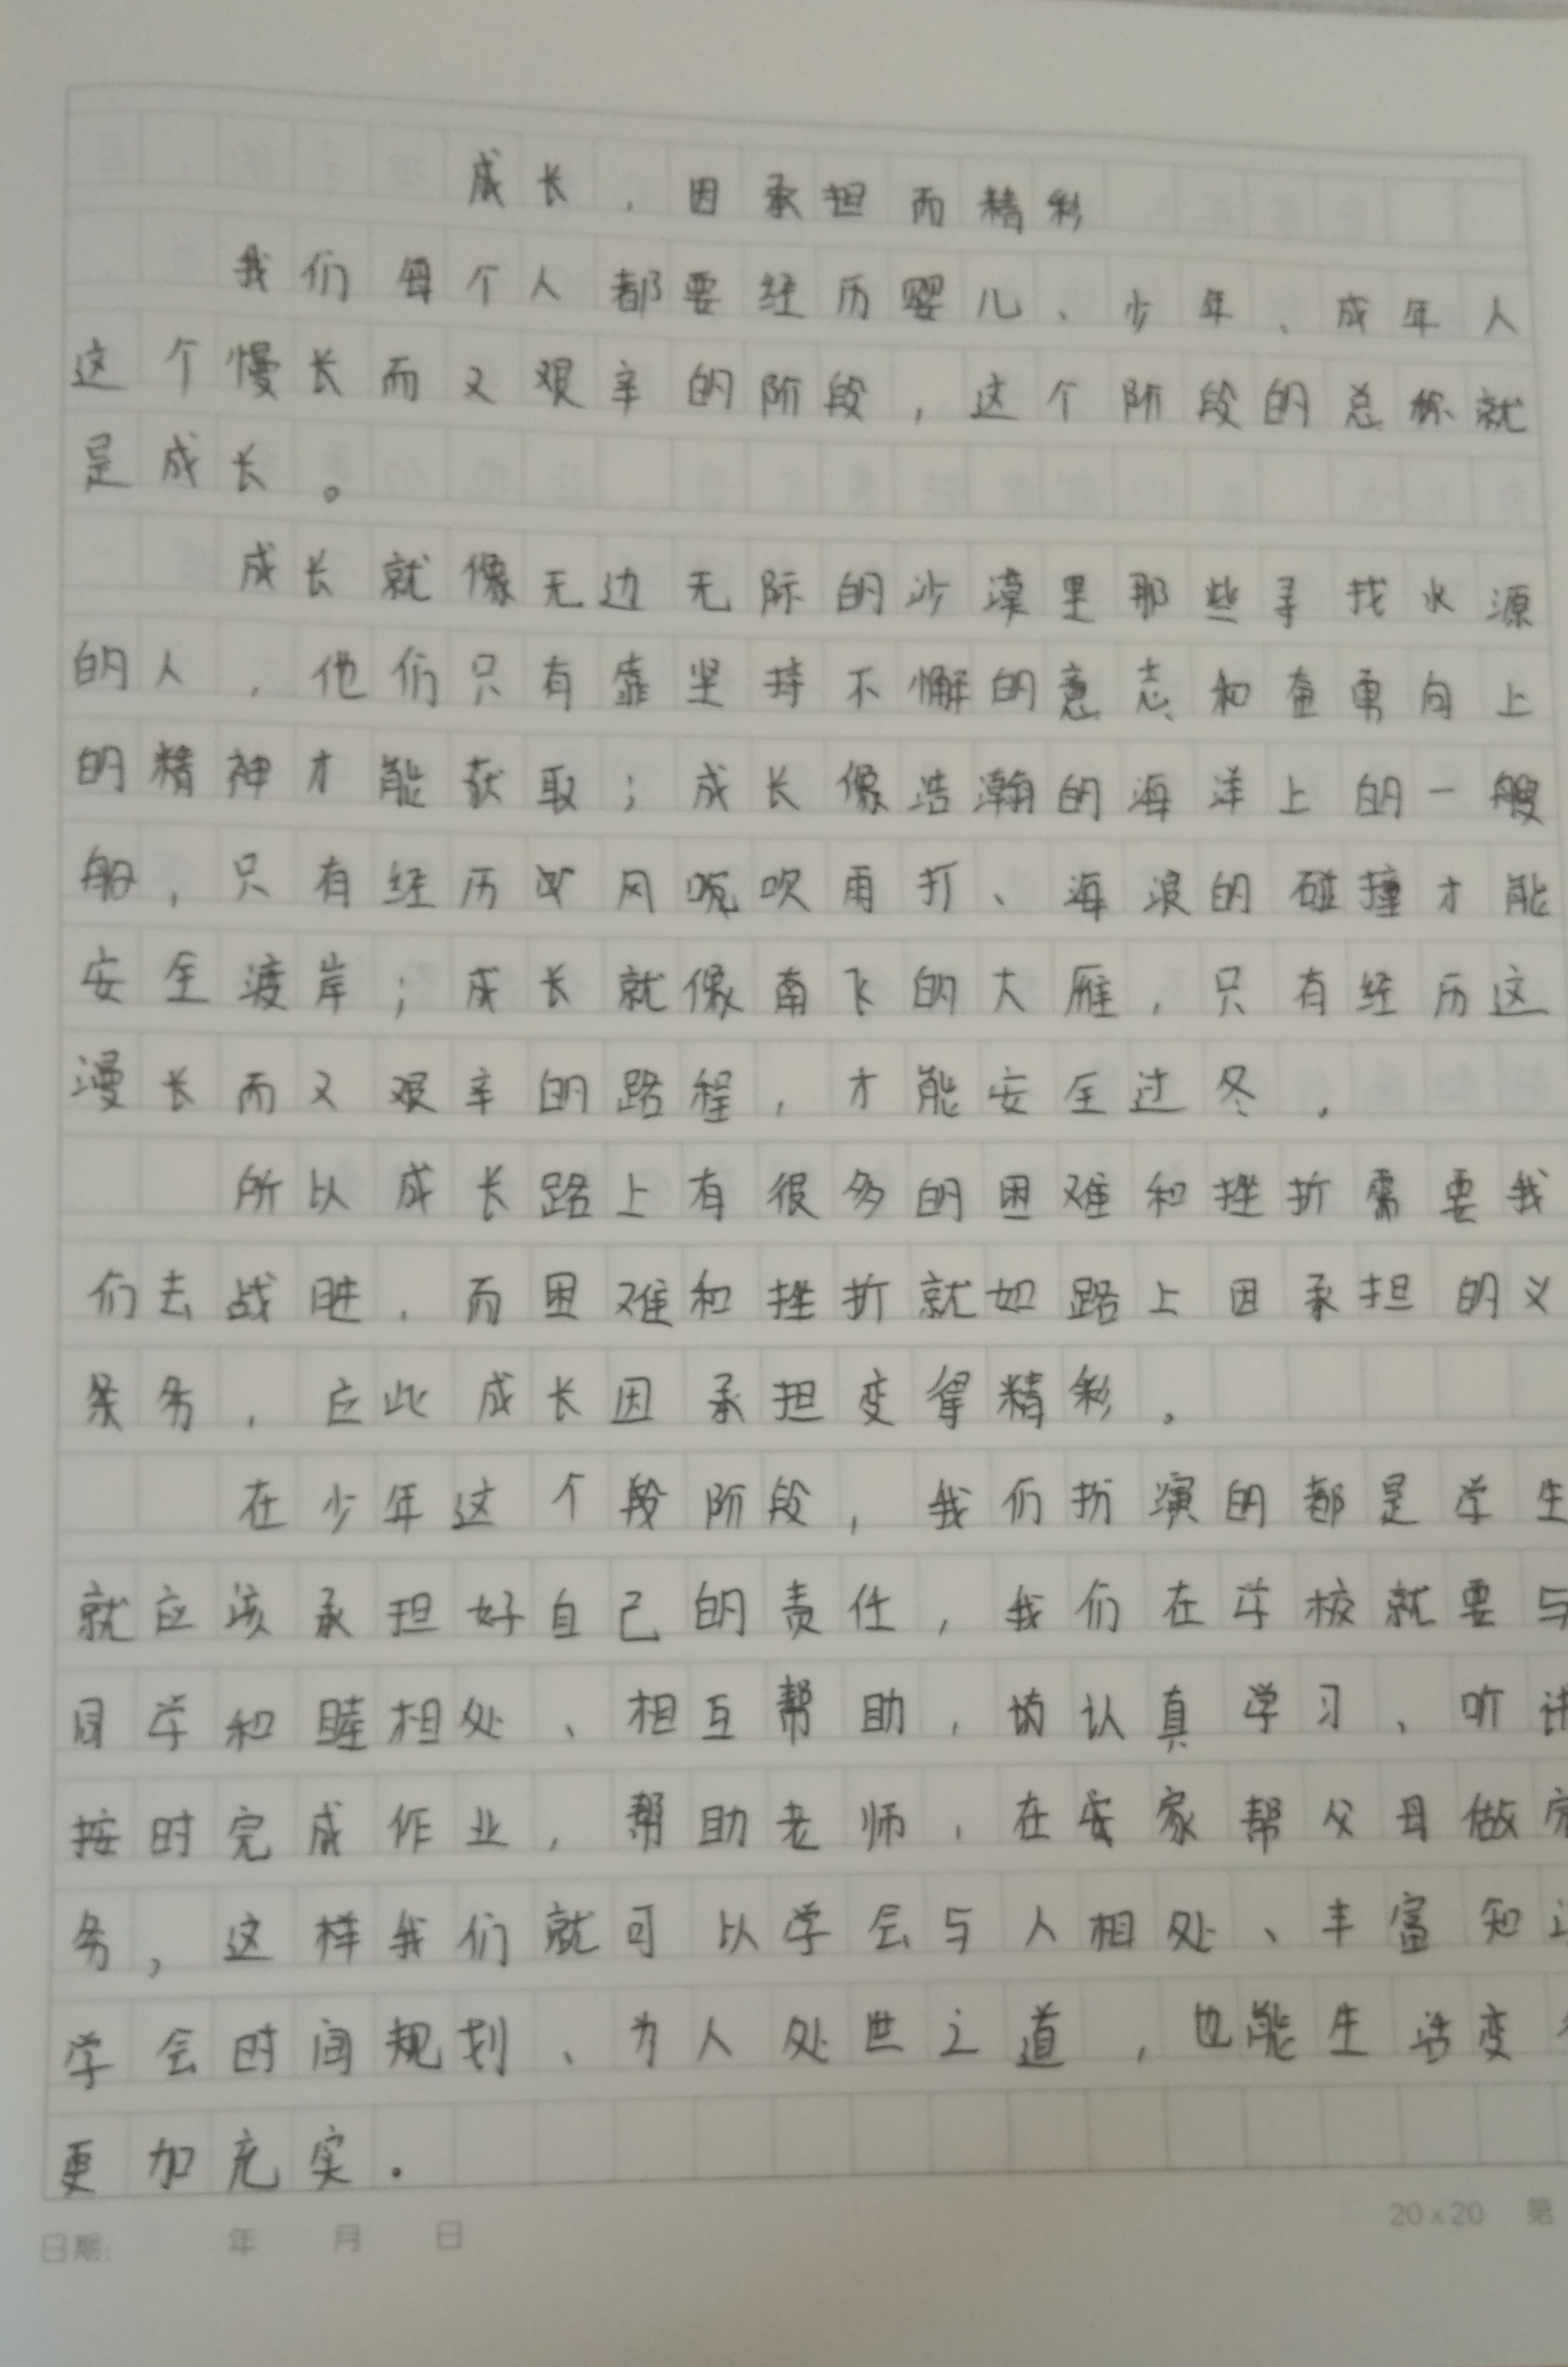 成长，因承担而精彩
我们每个人都要经历婴儿、少年、成年人
这个慢长而又艰辛的阶段，这个阶段的总称就
是成长。
成长就像无边无际的沙漠里那些寻找水源
的人，他们只有靠坚持不懈的意志和奋勇向上
的精神才能获取；成长像浩瀚的海洋上的一艘
船，只有经历风吹雨打、海浪的碰撞才能
安全渡岸；成长就像南飞的大雁，只有经历这
漫长而又艰辛的路程，才能安全过冬。
所以成长路上有很多的困难和挫折需要我
们去战胜，而困难和挫折就如路上因承担的义
务，应此成长因承担变得精彩。
在少年这个阶段，我们扮演的都是学生
就应该承担好自己的责任，我们在学校就要与
同学和睦相处、相互帮助，认真学习、听讲
按时完成作业，帮助老师，在家帮父母做家
务，这样我们就可以学会与人相处、丰富知
学会时间规划、为人处世之道，也能生活变
更加充实。
日期: 年 月 日
20×20 第